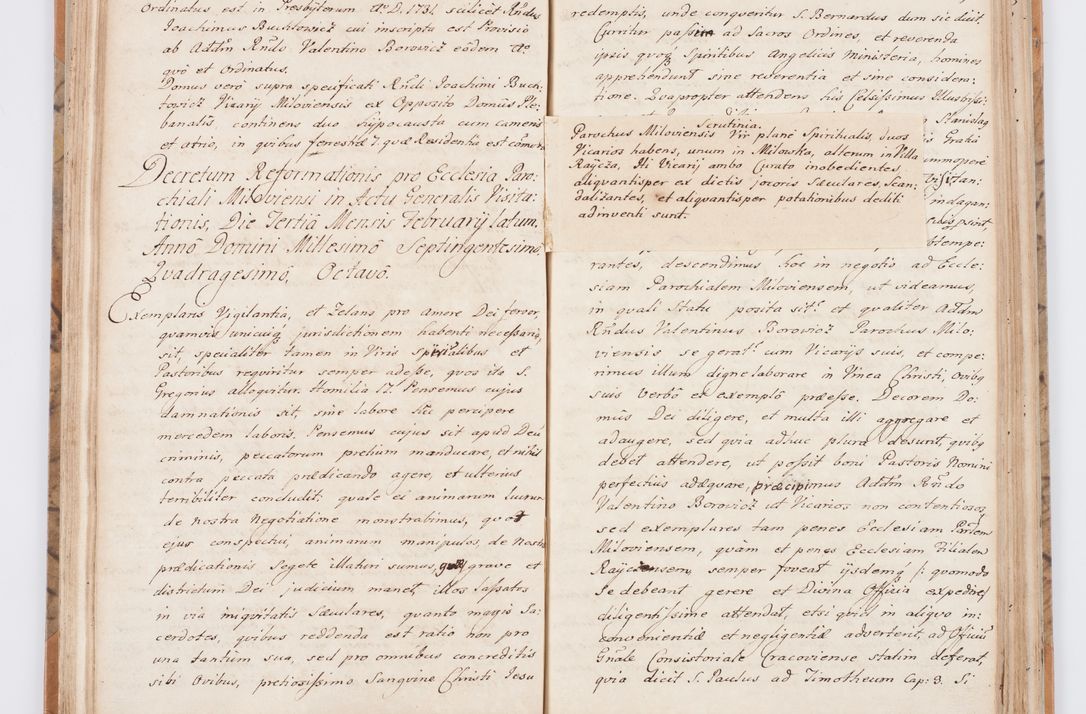 Ordinatus est in Presbyterum Aᵒ D. 1731. scilicet Rñdus
Joachimus Buchtowicz cui inscripta est Provisio
ab Addm Rñdo Valentino Borowicz eodem Aᵒ
quô et Ordinatus.
Domus verô supra specificati Rñdi Joachimi Buch-
towicz Vicarij Miloviensis ex Opposito Domûs Ple-
banalis, continens duo hypocausta cum cameris
et atrio, in quibus fenestræ 7. quæ Residentia est
Decretum Reformationis pro Ecclesia Paro-
chiali Miloviensi in Actu Generalis Visita-
tionis, Die Tertiâ Mensis Februarij latum,
Annô Domini Millesimô Septingentesimô,
Quadragesimô, Octavô.
Exemplaris Vigilantia, et Zelans pro amore Dei fervor,
quamvis unicuiq; jurisdictionem habenti necessaria
sit, specialiter tamen in Viris spiritalibus et
Pastoribus requiritur semper adesse, quos ita S.
Gregorius alloquitur. Homilia 17. Pensemus cujus
damnationis sit sine labore hîc percipere
mercedem laboris. Pensemus cujus sit apud Deũ
criminis, peccatorum pretium manducare, et nihil
contra peccata prædicando agere, et ulterius
terribiliter concludit: quale ei animarum lucrum
de nostra Negotiatione monstrabimus,
ejus conspectui, animarum manipulos, de Nostra
prædicationis Segete illaturi sumus, grave et
districtum Dei judicium manet, illos lapsatos
in via iniquitatis Sæculares, quanto magis Sa-
cerdotes, quibus reddenda est ratio non pro
una tantùm sua, sed pro omnibus concreditis
sibi Ovibus, pretiosissimo Sanguine Christi Jesu
redemptis, unde conqueritur S. Bernardus dum sic dicit
Curritur passim ad Sacros Ordines, et reverenda
ipsis quoq; Spiritibus Angelicis ministeria, homines
apprehendunt sine reverentia et sine considera-
tione. Quapropter attendens his Celsissimus Illustrissi-
Stanislaq
Gratiâ
immoperè
Visitan-
indagan-
obtempe-
Scrutinia.
Parochus Miloviensis Vir planè Spiritualis, duos
Vicarios habens, unum in Milowka, alterum in Villa
Rajcza, Hi Vicarij ambo Curato inobedientes,
aliquantisper ex dictis jocoris Sæculares, Scan-
dalizantes, et aliquantisper potationibus dediti
adinventi sunt.
rantes, descendimus hoc in negotio ad Eccle-
siam Parochialem Miloviensem, ut videamus,
in quali Statu posita sit et qualiter Addm
Rñdus Valentinus Borowicz Parochus Milo-
viensis se gerat cum Vicarijs suis, et compe-
rimus illum digne laborare in Vinea Christi, Ovibq
suis Verbô et exemplô præesse. Decorem Do-
mûs Dei diligere, et multa illi aggregare et
adaugere, sed quia adhuc plura desunt, quibq
debet attendere, ut possit boni Pastoris Nomini
perfectiùs adæquare, præcipimus Addm Rñdo
Valentino Borowicz ut Vicarios non contentiosos,
sed exemplares tam penes Ecclesiam Parlem
Miloviensem, quàm et penes Ecclesiam Filialem
Raycensem, semper foveat ijsdemq; /: quomodo
se debeant gerere et Divina Officia expedire/
diligentissime attendat, etsi quid in aliquo in-
convenientiæ et negligentiæ adverterit, ad Officiũ
Gñale Consistoriale Cracoviense statim deferat,
quia dicit S. Paulus ad Timotheum Cap: 3. Si